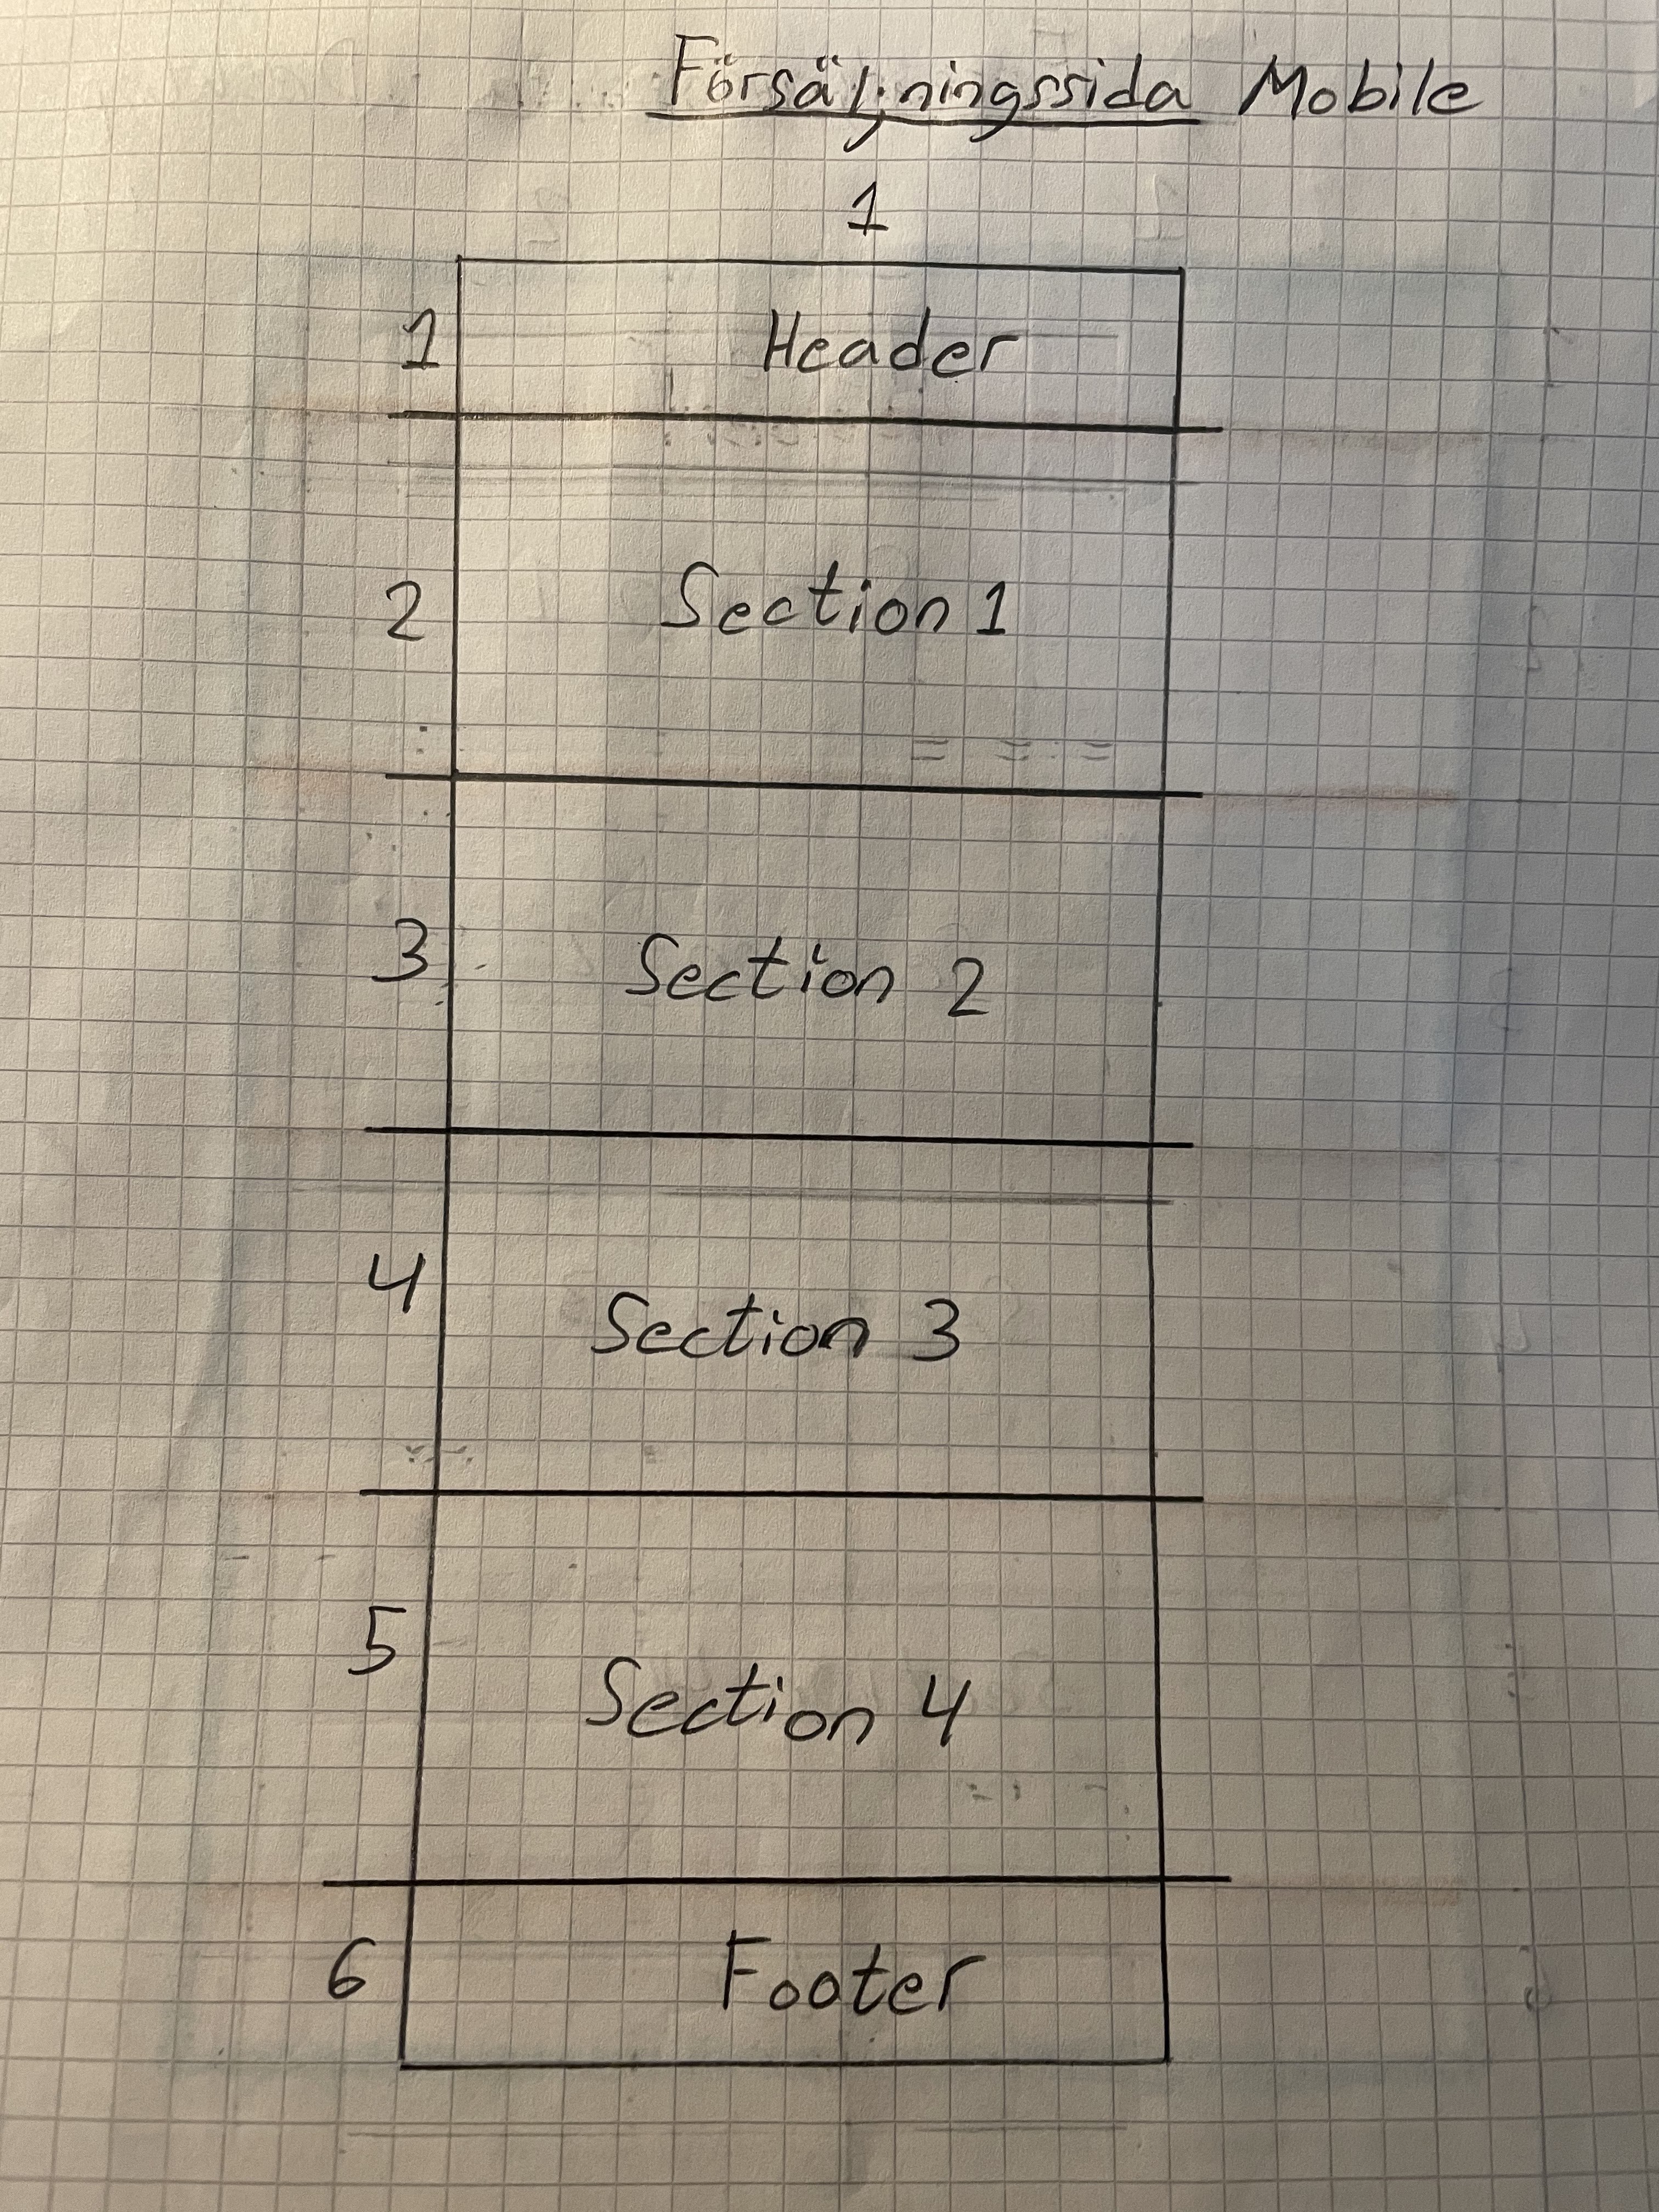 Försäljningssida Mobile
1
1 Header
2 Section 1
3 Section 2
4 Section 3
5 Section 4
6 Footer